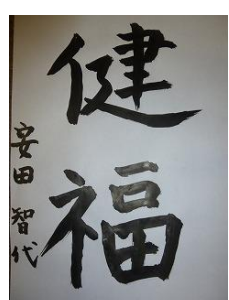 健福
安田 智代